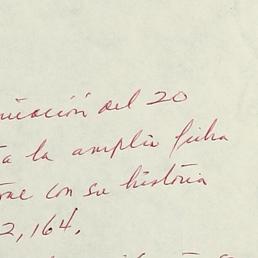 nicación del 20
ta la amplia ficha
con su historia
2,164.